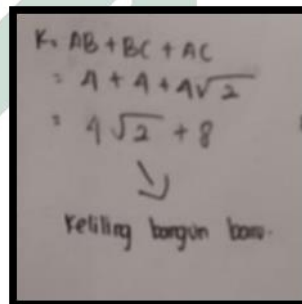 K = AB + BC + AC
= 4 + 4 + 4√2
= 4√2 + 8
Keliling bangun baru.